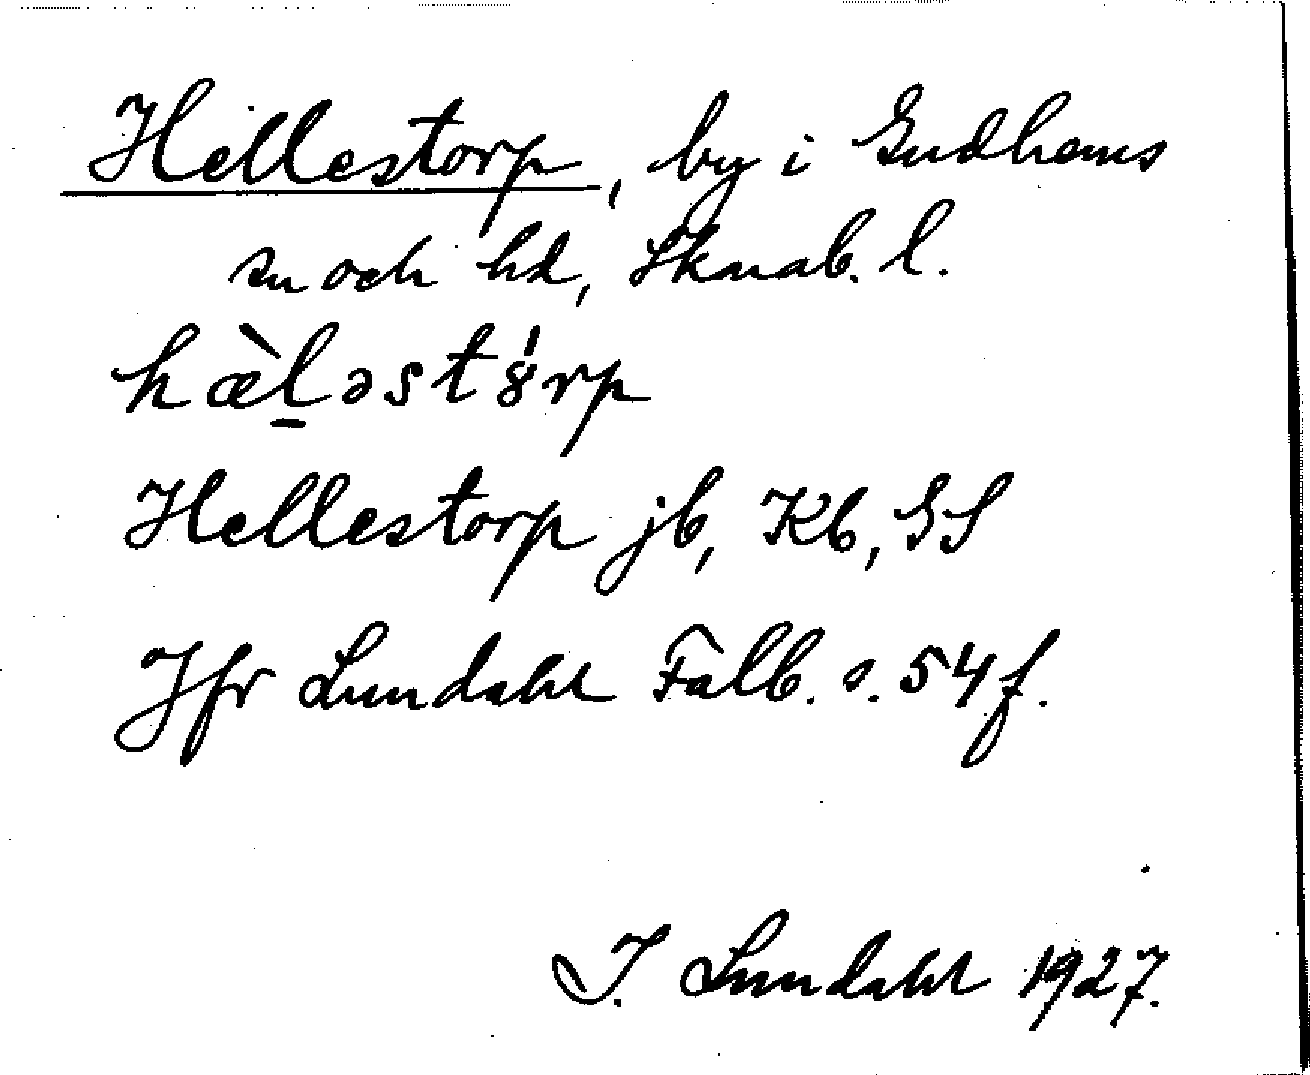 Hellestorp, by i Gudhems
sn och hd, Skarab. l.
hæ̀l̠əstȣ́rp
Hellestorp jb, Kb, GS
Jfr Lundahl Falb. s. 54 f.
I. Lundahl 1927.